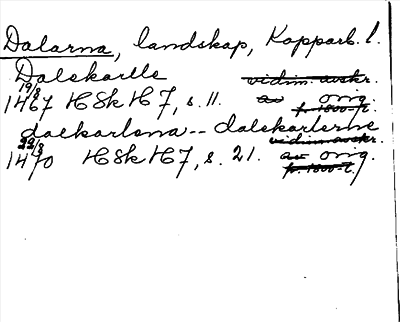 Dalarna, landskap, Kopparb. l.
Dalekarlle vidim. avskr.
19/8
1467 HSkH 7, s. 11. av orig.
fr. 1800-t.
dalkarlena -- dalekarlerne
22/3 vidim. avskr.
1470 HSkH 7, s. 21. av orig.
fr. 1800-t.